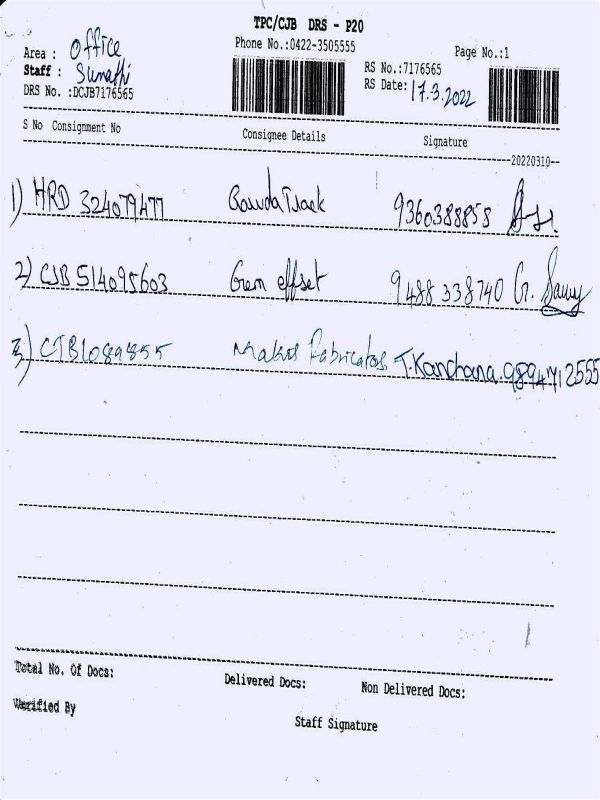 TPC/CJB DRS - P20
Area : Office
Phone No.:0422-3505555
Page No.:1
Staff : Sumathi
RS No.:7176565
DRS No. :DCJB7176565
RS Date: 17.3.2022
S No Consignment No Consignee Details Signature
--20220310--
1) HRD 324079477 9360388858
2) CJB 514095603 Gem offset 9488 338740 G.
3) CJB1089855 Fabricators T.Kanchana. 9894712555
Total No. Of Docs: Delivered Docs: Non Delivered Docs:
Verified By Staff Signature